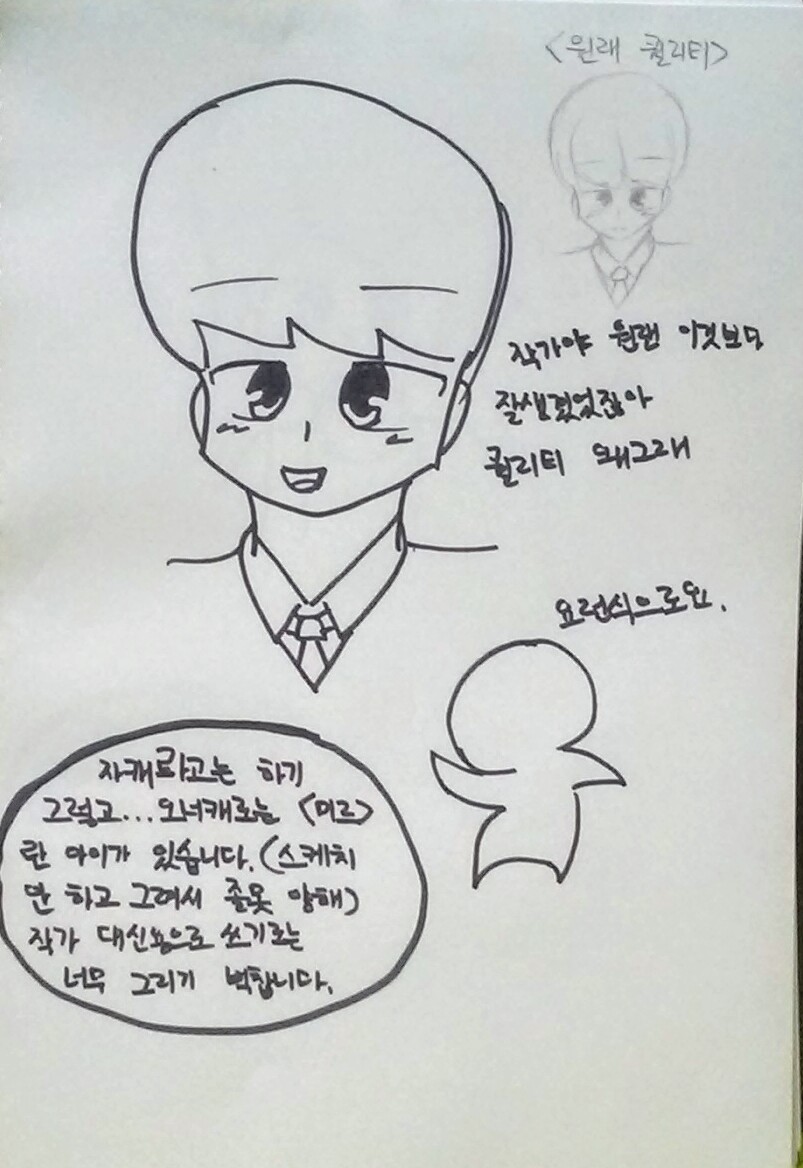 <원래 퀄리티>
작가야 원랜 이것보다
잘생겼었잖아
퀄리티 왜그래
요런식으로요.
자캐라고는 하기
그렇고... 오너캐로는 <미르>
란 아이가 있습니다. (스케치
만 하고 그려서 졸못 망해)
작가 대신용으로 쓰기로는
너무 그리기 벅찹니다.